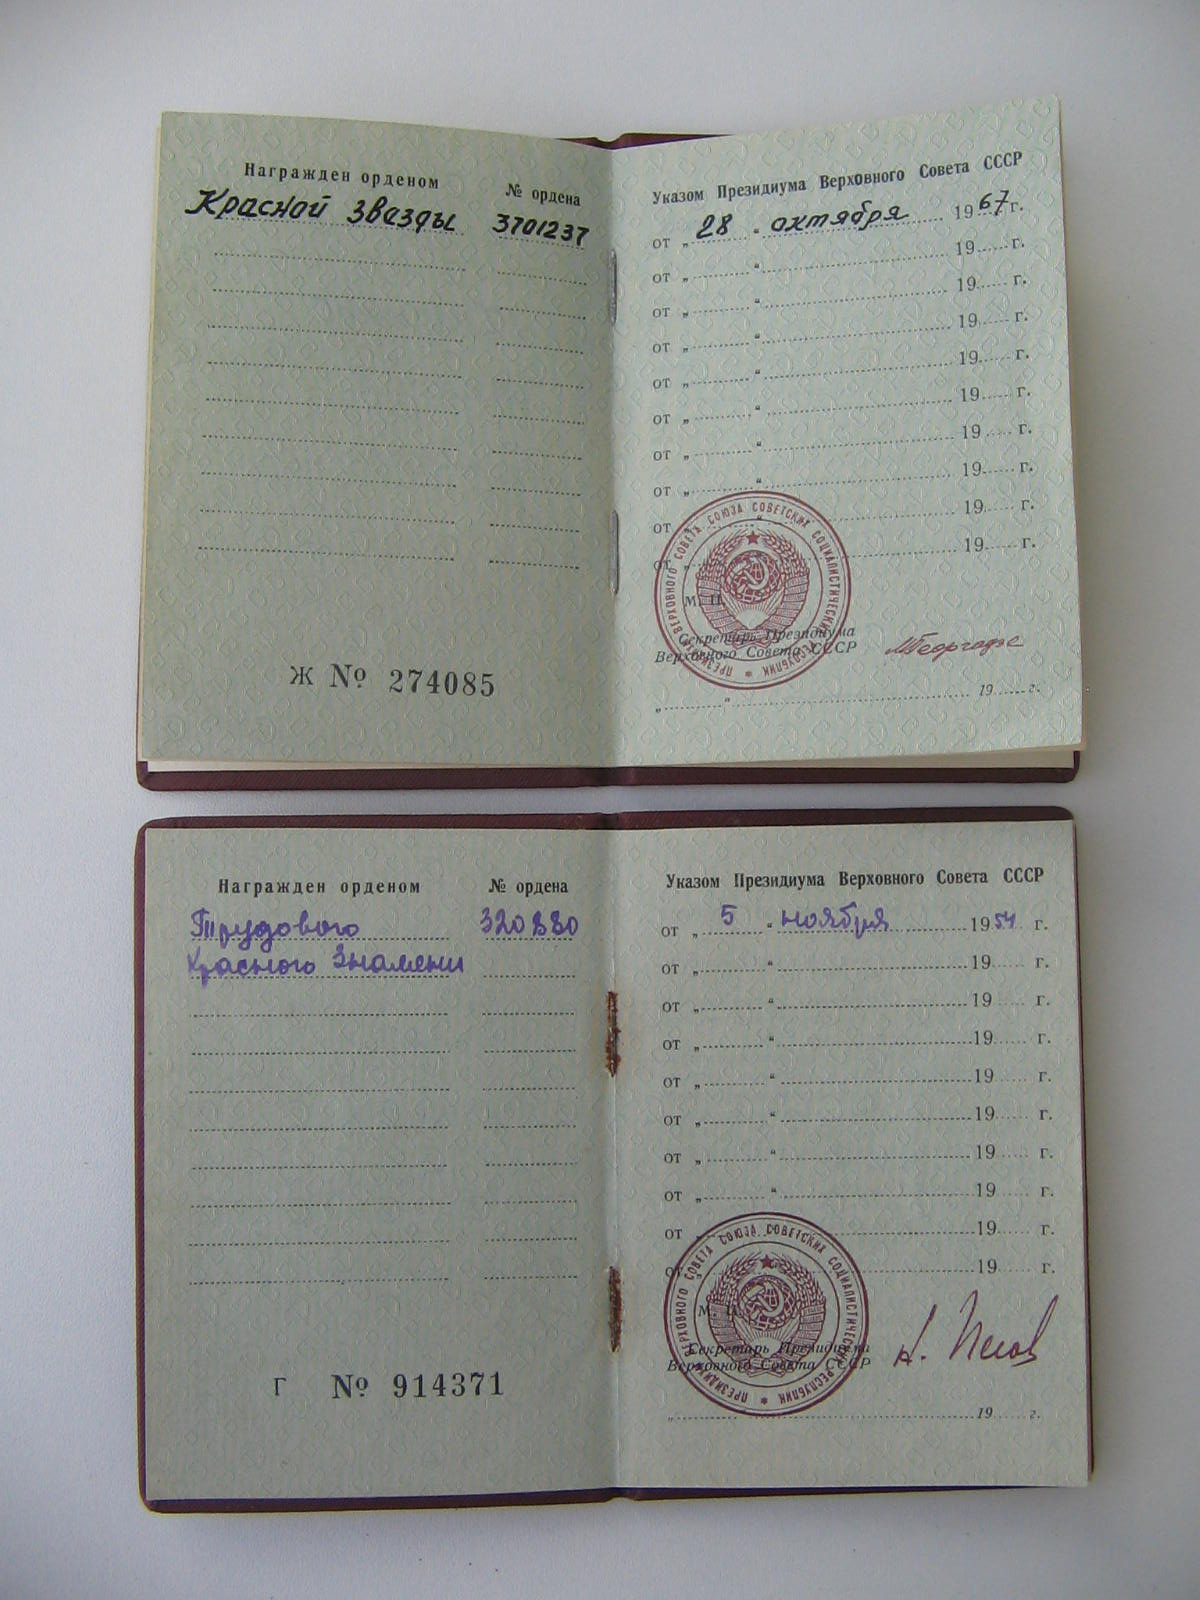 Награжден орденом № ордена
Красной Звезды 3701237
Ж № 274085
Указом Президиума Верховного Совета СССР
от „ 28 “ октября 1967 г.
от „ “ 19 г.
от „ “ 19 г.
от „ “ 19 г.
от „ “ 19 г.
от „ “ 19 г.
от „ “ 19 г.
от „ “ 19 г.
от „ “ 19 г.
от „ 19 г.
М. П.
ПРЕЗИДИУМ ВЕРХОВНОГО СОВЕТА СОЮЗА СОВЕТСКИХ СОЦИАЛИСТИЧЕСКИХ РЕСПУБЛИК
Секретарь Президиума
Верховного Совета СССР МГеоргадзе
„ “ 19 г.
Награжден орденом № ордена
Трудового 320880
Красного Знамени
Г № 914371
Указом Президиума Верховного Совета СССР
от „ 5 “ ноября 1954 г.
от „ “ 19 г.
от „ “ 19 г.
от „ “ 19 г.
от „ “ 19 г.
от „ “ 19 г.
от „ “ 19 г.
от „ “ 19 г.
от 19 г.
от 19 г.
М. П.
ПРЕЗИДИУМ ВЕРХОВНОГО СОВЕТА СОЮЗА СОВЕТСКИХ СОЦИАЛИСТИЧЕСКИХ РЕСПУБЛИК
Секретарь Президиума
Верховного Совета СССР Н. Пегов
„ “ 19 г.